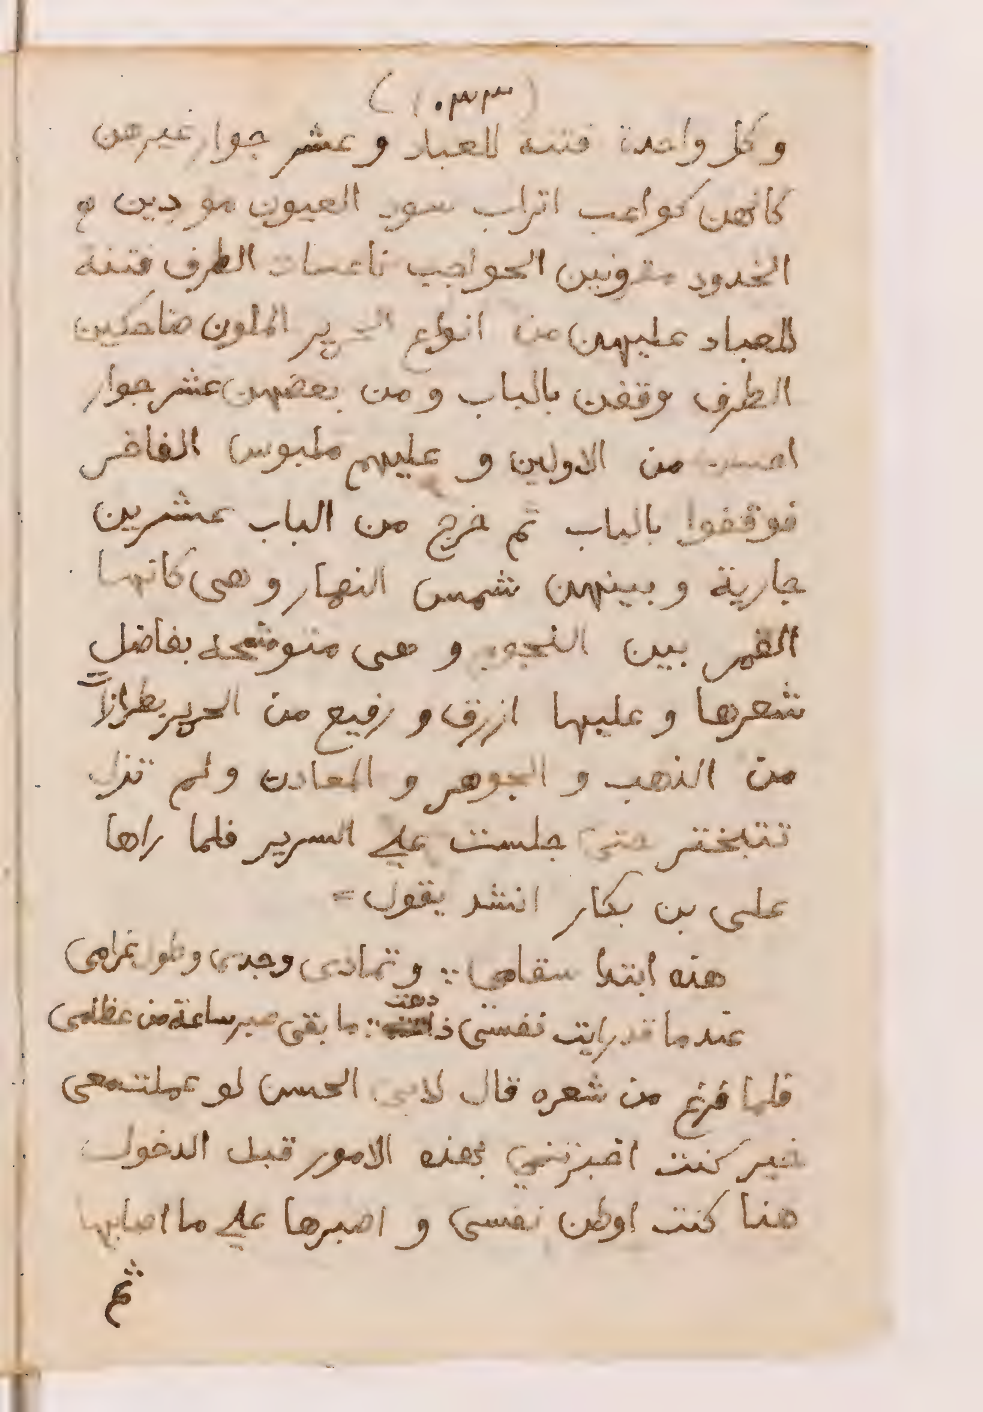 (٣٣٠)
وكل واحدة فتنه للعباد وعشر جوار غيرهن
كانهن كواعب اتراب سود العيون موردين
الخدود مقرونين الحواجب ناعسات الطرف فتنة
للعباد عليهن من انواع الحرير الملون ضاحكين
الطرف وقفن بالباب ومن بعضهن عشر جوار
احسن من الاولين و عليهم ملبوس الفاخر
فوقفوا بالباب ثم خرج من الباب عشرين
جارية و بينهن شمس النهار وهى كانها
القمر بين النجوم و هى متوشحه بفاضل
شعرها و عليها ازرق و رفيع من الحرير بطرازاً
من الذهب و الجوهر و المعادن ولم تزل
تتبختر حتى جلست على السرير فلما راها
على بن بكار انشد يقول =
هذه ابتدا سقامى ∴ وتمادى وجدى وطول غرامى
عندما قد رايت نفسى ذابت ∴ ما بقى صبر ساعة من عظامى
فلما فرغ من شعره قال لابى الحسن لو عملت معى
خير كنت اخبرتنى بهذه الامور قبل الدخول
هنا كنت اوطن نفسى و اصبرها على ما اصابها
ثم